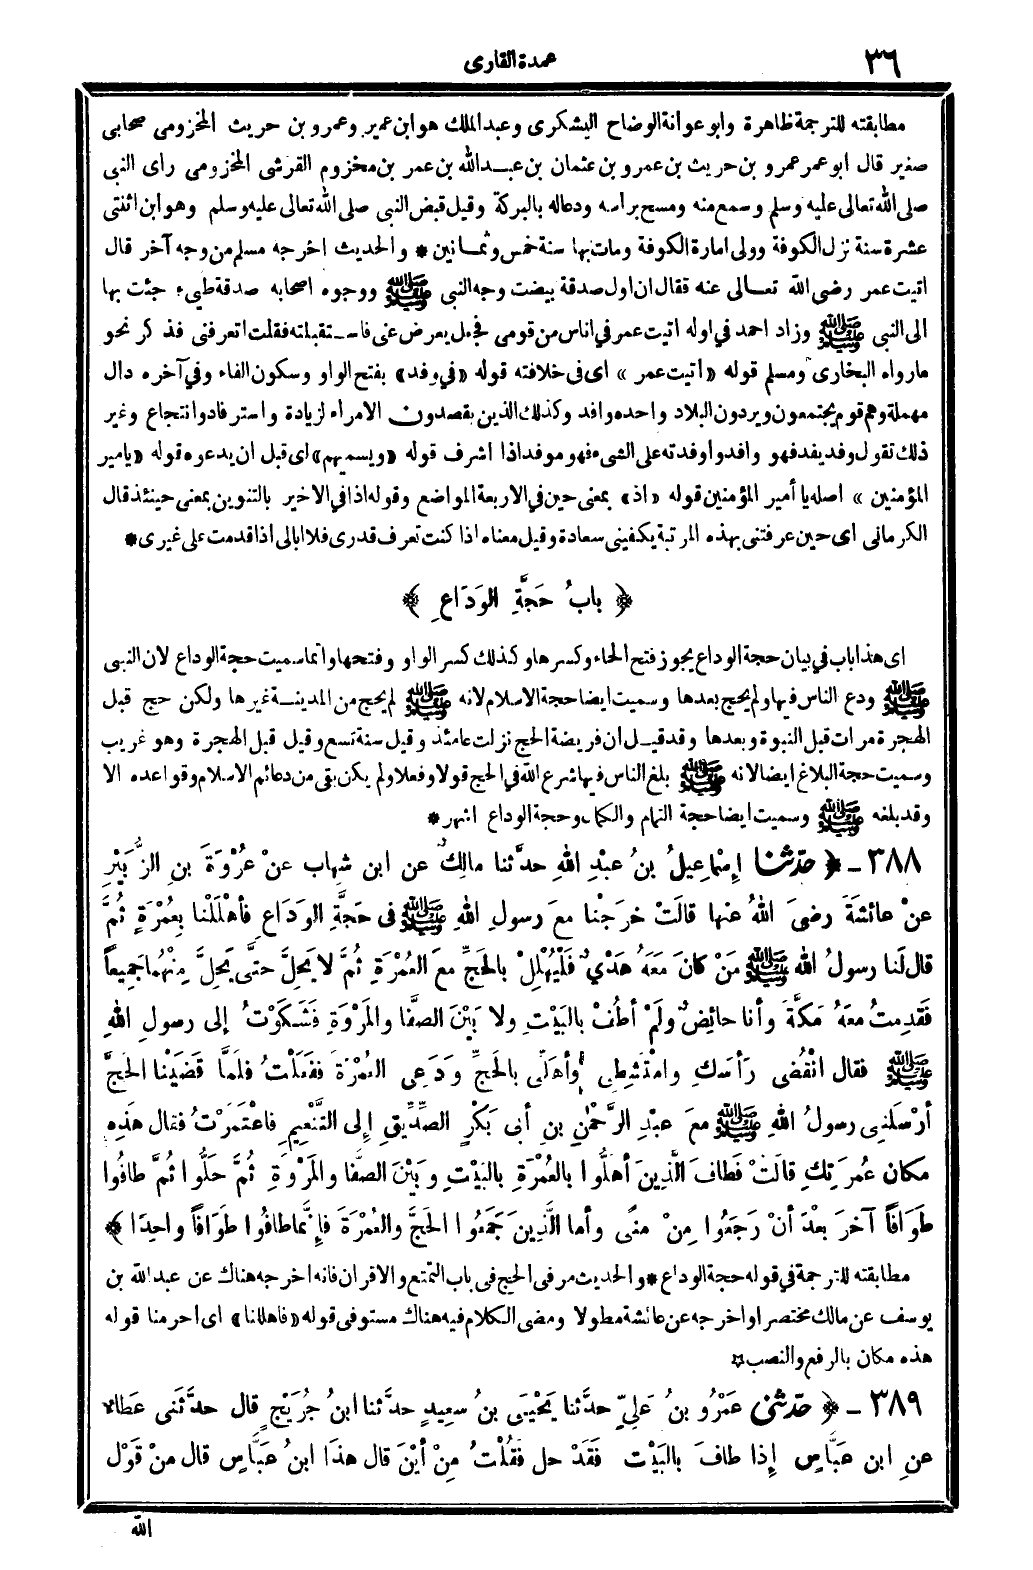 ٣٦
عمدة القارى
مطابقته للترجمة ظاهرة وابو عوانة الوضاح اليشكرى وعبد الملك هو ابن عمير وعمرو بن حريث المخزومى صحابى
صغير قال ابو عمر عمرو بن حريث بن عمرو بن عثمان بن عبد الله بن عمر بن مخزوم القرشى المخزومى راى النبى
صلى الله تعالى عليه وسلم وسمع منه ومسح برأسه ودعاله بالبركة وقيل قبض النبى صلى الله تعالى عليه وسلم وهو ابن اثنتى
عشرة سنة نزل الكوفة وولى امارة الكوفة ومات بها سنة خمس وثمانين * والحديث اخرجه مسلم من وجه آخر قال
اتيت عمر رضى الله تعالى عنه فقال ان اول صدقة بيضت وجه النبى ﷺ ووجوه اصحابه صدقة طيء جئت بها
الى النبى ﷺ وزاد احمد فى اوله اتيت عمر فى اناس من قومى فجعل يعرض عنى فاستقبلته فقلت اتعرفنى فذكر نحو
مارواه البخارى ومسلم قوله «أتيت عمر» اى فى خلافته قوله «فى وفد» بفتح الواو وسكون الفاء وفى آخره دال
مهملة وهم قوم يجتمعون ويردون البلاد واحده وافد وكذلك الذين يقصدون الامراء لزيادة واسترفاد وانتجاع وغير
ذلك تقول وفد يفد فهو وافد واوفدته على الشىء فهو موفد اذا اشرف قوله «ويسميهم» اى قبل ان يدعوه قوله «يا مير
المؤمنين» اصله يا أمير المؤمنين قوله «اذ» بمعنى حين فى الاربعة المواضع وقوله اذا فى الاخير بالتنوين بمعنى حينئذ قال
الكرمانى اى حين عرفتنى بهذه المرتبة يكفينى سعادة وقيل معناه اذا كنت تعرف قدرى فلا ابالى اذا قدمت على غيرى *
﴿ بابُ حَجَّةِ الوَدَاعِ ﴾
اى هذا باب فى بيان حجة الوداع يجوز فتح الحاء وكسرها وكذلك كسر الواو وفتحها وانما سميت حجة الوداع لان النبى
ﷺ ودع الناس فيها ولم يحج بعدها وسميت ايضا حجة الاسلام لانه ﷺ لم يحج من المدينة غيرها ولكن حج قبل
الهجرة مرات قبل النبوة وبعدها وقد قيل ان فريضة الحج نزلت عامئذ وقيل سنة تسع وقيل قبل الهجرة وهو غريب
وسميت حجة البلاغ ايضا لانه ﷺ بلغ الناس فيها شرع الله فى الحج قولا وفعلا ولم يكن بقى من دعائم الاسلام وقواعده الا
وقد بلغه ﷺ وسميت ايضا حجة التمام والكمال وحجة الوداع اشهر *
٣٨٨ - ﴿ حدّثنا إِسْمَاعِيلُ بنُ عبْدِ اللهِ حدّثنا مالِكٌ عن ابنِ شهابٍ عنْ عُرْوَةَ بنِ الزُّبَيْرِ
عنْ عائشَةَ رضىَ اللهُ عنها قالَتْ خرَجْنا معَ رسولِ اللهِ ﷺ فى حَجَّةِ الوَدَاعِ فأهْلَلْنا بِعُمْرَةٍ ثُمَّ
قال لَنا رسولُ اللهِ ﷺ مَنْ كانَ مَعَهُ هَدْىٌ فَلْيُهْلِلْ بالحَجِّ معَ العُمْرَةِ ثُمَّ لا يَحِلَّ حتَّى يَحِلَّ مِنْهُما جَمِيعاً
فَقَدِمْتُ معَهُ مَكَّةَ وأنا حائِضٌ ولَمْ أطُفْ بالبَيْتِ ولا بَيْنَ الصفَّا والمَرْوَةِ فَشَكَوْتُ إلى رسولِ اللهِ
ﷺ فقال انْقُضِى رَأْسَكِ وامْتَشِطِى وأهِلِّى بالحَجِّ ودَعِى العُمْرَةَ ففَعَلْتُ فلَمَّا قضَيْنا الحَجَّ
أرْسَلَنِى رسولُ اللهِ ﷺ معَ عبْدِ الرَّحْمٰنِ بنِ أبى بَكْرٍ الصِّدِّيقِ إلى التَّنْعِيمِ فاعْتَمَرْتُ فقال هَذِهِ
مكان عُمْرَتِكِ قالَتْ فَطافَ الَّذِينَ أهَلُّوا بالعُمْرَةِ بالبَيْتِ وبَيْنَ الصفَّا والمَرْوَةِ ثُمَّ حَلُّوا ثُمَّ طافُوا
طَوَافاً آخرَ بعْدَ أنْ رَجَعُوا مِنْ مِنًى وأما الَّذِينَ جَمَعُوا الحَجَّ والعُمْرَةَ فإِنَّما طافُوا طَوَافاً واحِدًا ﴾
مطابقته للترجمة فى قوله حجة الوداع * والحديث مر فى الحج فى باب التمتع والاقران فانه اخرجه هناك عن عبد الله بن
يوسف عن مالك مختصرا واخرجه عن عائشة مطولا ومضى الكلام فيه هناك مستوفى قوله «فاهللنا» اى احرمنا قوله
هذه مكان بالرفع والنصب *
٣٨٩ - ﴿ حدّثنى عَمْرُو بنُ عَلِيٍّ حدَّثنا يَحْيَى بنُ سعِيدٍ حدثنا ابنُ جُرَيْجٍ قال حدَّثَنى عَطاءٌ
عنِ ابنِ عبَّاسٍ إذا طافَ بالبَيْتِ فَقَدْ حل فَقُلْتُ مِنْ أيْنَ قال هذَا ابنُ عبَّاسٍ قال منْ قَوْلِ
الله